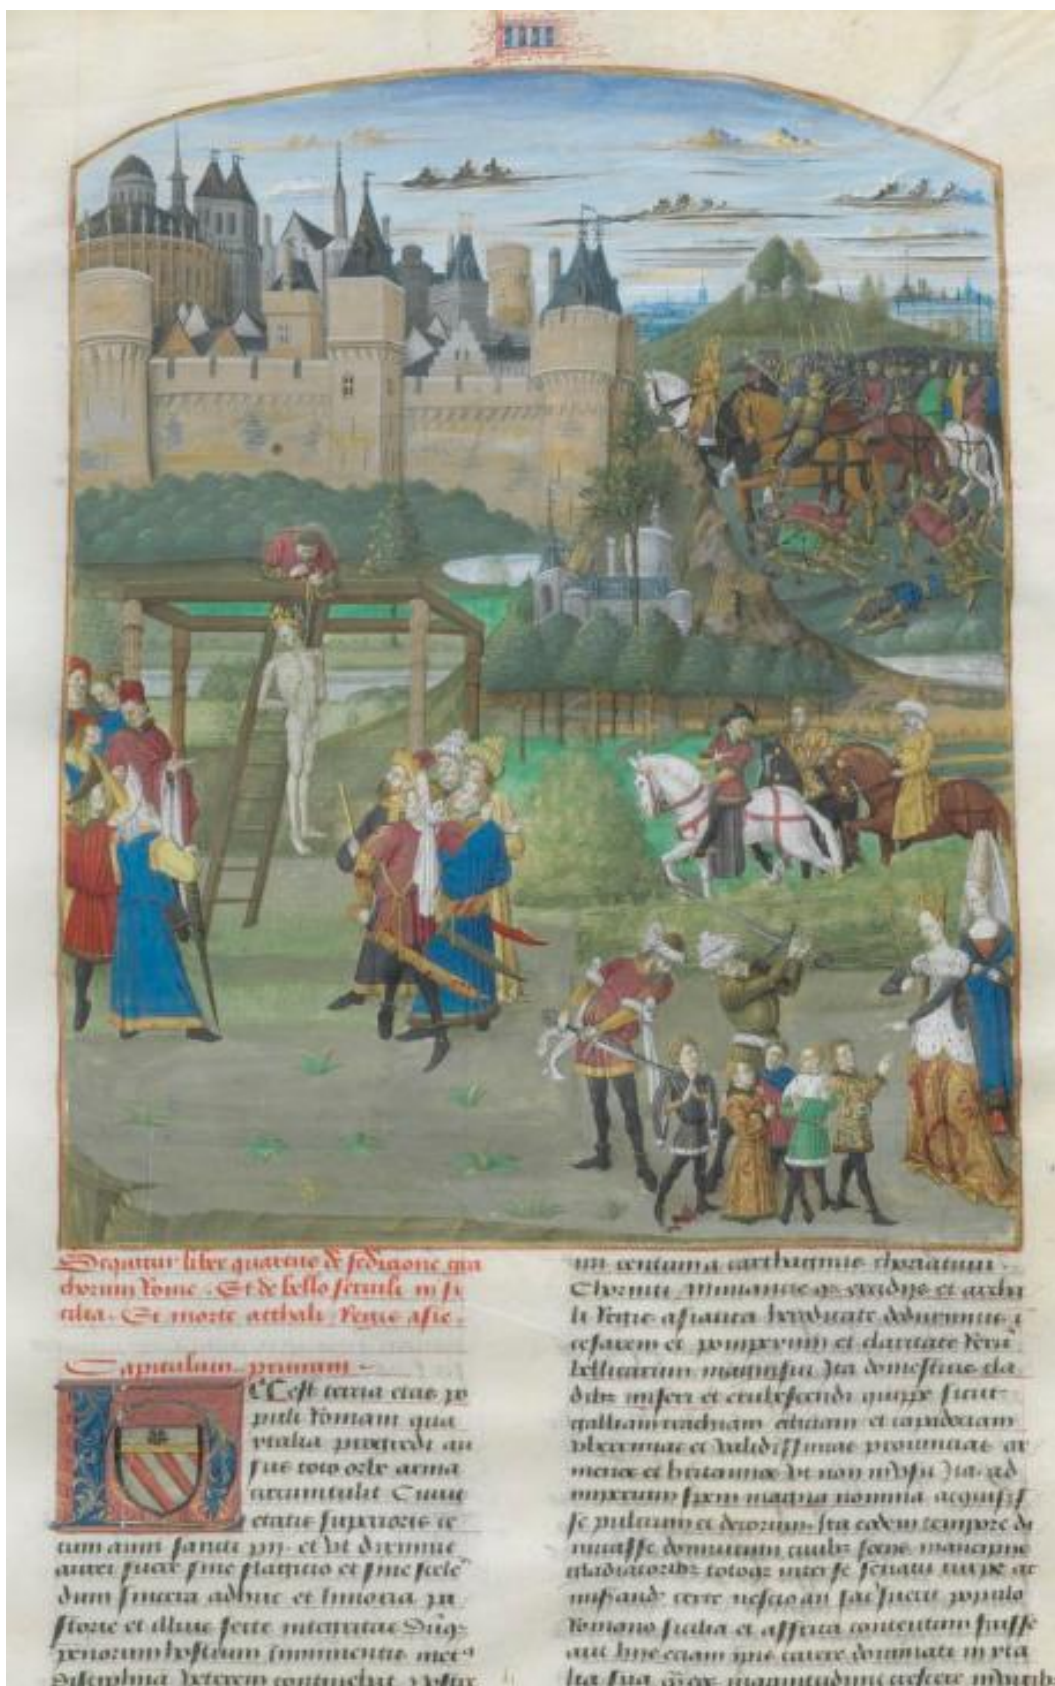 IIII
Sequitur liber quartus de sedicione gra
chorum Rome . Et de bello servili in si
cilia . Et morte atthali Regis asie .
Capitulum primum .
est tercia etas po
puli Romani qua
ytalia progredi au
sus toto orbe arma
circumtulit Cuius
etatis superioris ce
tum anni sancti pii et ut diximus
aurei fuere sine flagicio et sine scele
dum sincera adhuc et innoxia pa
storie et illius secte integritas
penorum hostium imminentis met9
disciplinam veterem continebat
carthaginis
Chorinti Numancie et
li Regis asiatica hereditate
cesarem et pompeyum et claritate Reru
bellicarum Ita domesticis cla
dibz miseri et erubescendi quippe sicut
galliam trachiam ciliciam et capadociam
uberrimas et validissimas provincias ar
menos et britannos ut non in usu Ita ad
imperium spem magna nomina acquisis
se pulcrum et decorum Ita eodem tempore di
micasse civibz
gladiatoribz totoqz inter se senatu turpe ac
miserand certe nescio an sacius fuerit populo
Romano sicilia et affrica contentum fuisse
aut hiis eciam ipsis carere dominanti in yta
lia sua magnitudinis crescere